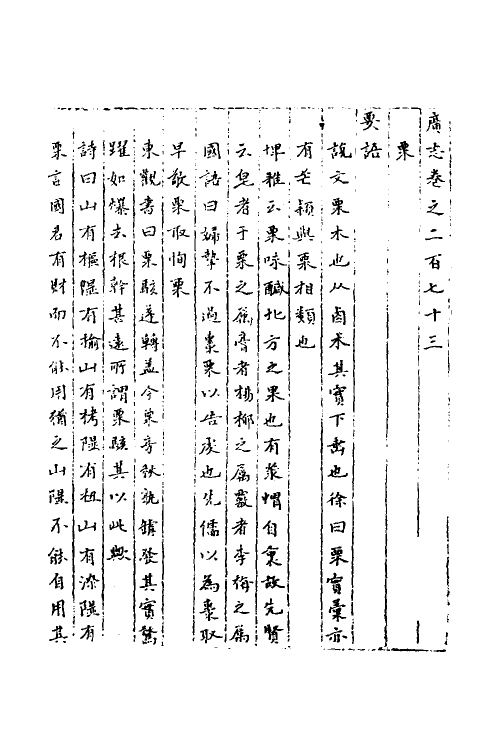 廣志卷之二百七十三
栗
要語
說文栗木也从卤木其實下垂也徐曰栗實彙亦
有芒穎與粟相類也
埤雅云栗味醎北方之果也有莍蝟自裹故先賢
云皂者于栗之屬膏者楊柳之屬覈者李梅之屬
國語曰婦摯不過棗栗以告虔也先儒以為棗取
早敬栗取恂栗
東觀書曰栗駭蓬轉蓋今栗房秋號鏬發其實驚
躍如爆去根幹其遠所謂栗駭其以此歟
詩曰山有樞隰有榆山有栲隰有杻山有漆隰有
栗言國君有財而不能用猶之山隰不能自用其